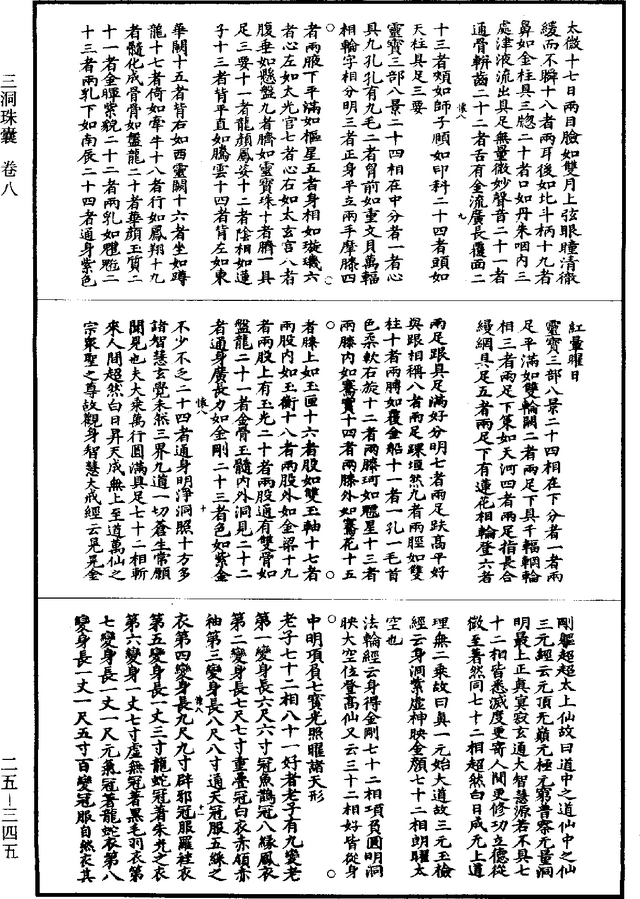 三洞珠囊 卷八
二五—三四五
太微十七曰兩目臉如雙月上弦眼瞳清徹
緩而不瞬十八者兩耳後如北斗柄十九者
鼻如金柱具三牕二十者口如丹朱咽內三
處津液流出具足無量微妙聲音二十一者
通骨駢齒二十二者舌有金流廣長覆面二
恢八 九
十三者頰如師子頤如印科二十四者頭如
天柱具足三要
靈寶三部八景二十四相在中分者一者心
具九孔孔有九毛二者胷前如重文貝萬輻
相輪字相分明三者正身平立兩手摩膝四
者兩腋下平滿如樞星五者身相如璇璣六
者心左如太光宮七者心右如太玄宮八者
腹垂如懸盤九者臍如靈寶珠十者臍一具
足三要十一者龍顏鳳姿十二者陰相如蓮
子十三者背平直如騰雲十四者背左如東
華闕十五者背右如西靈闕十六者坐如蹲
龍十七者倚如牽牛十八者行如鳳翔十九
者髓化成骨骨如盤龍二十者華顏玉質二
十一者金暉紫貌二十二者兩乳如魁二
十三者兩乳下如南辰二十四者通身紫色
紅暈曜日
靈寶三部八景二十四相在下分者一者兩
足平滿如雙輪闕二者兩足下具千輻輞輪
相三者兩足下策如天河四者兩足指長合
縵網具足五者兩足下有蓮花相輪登六者
兩足跟具足滿好分明七者兩足趺高平好
與跟相稱八者兩足踝垣然九者兩脛如雙
柱十者兩腨如覆金船十一者一孔一毛首
色柔軟右旋十二者兩膝珂如魁星十三者
兩膝內如騫實十四者兩膝外如騫花十五
者膝上如玉匣十六者股如雙玉軸十七者
兩股內如玉衡十八者兩股外如金梁十九
者兩股上有玉光二十者兩股通有雙骨如
盤龍二十一者金骨玉髓內外洞見二十二
者通身廣長力如金剛二十三者色如紫金
恢八 十
不少不乏二十四者通身明淨洞照十方多
諸智慧玄覺未然三界九道一切蒼生常願
聞見也夫大乘萬行圓滿具足七十二相斬
來人間超然白日昇天成無上至道萬仙之
宗眾聖之尊故觀身智慧大戒經云晃晃金
剛軀超超太上仙故曰道中之道仙中之仙
三元經云元頂無巔元極元窮普察元量洞
明最上正真寞寂玄通大智慧源若不具七
十二相皆悉滅度更寄人間更修功立德從
微至著然同七十二相超然白日成元上道
理無二乘故曰真一元始大道故三元玉檢
經云身洞紫虛神映金顏七十二相朗曜太
空也
法輪經云身得金剛七十二相項負圓明洞
映大空位登高仙又云三十二相好皆從身
中明項負七寶光照曜諸天形
老子七十二相八十一好者老子有九變老
第一變身長六尺六寸冠魚鵲冠八緣鳳衣
第二變身長七尺七寸重疊冠白衣赤領赤
袖第三變身長八尺八寸通天冠服五綵之
恢八 十一
衣第四變身長九尺九寸辟邪冠服羅袿衣
第五變身長一丈三寸龍蛇冠著朱光之衣
第六變身一丈七寸虛無冠著黑毛羽衣第
七變身長一丈一尺元氣冠著龍蛇衣第八
變身長一丈一尺五寸百變冠服自然衣其